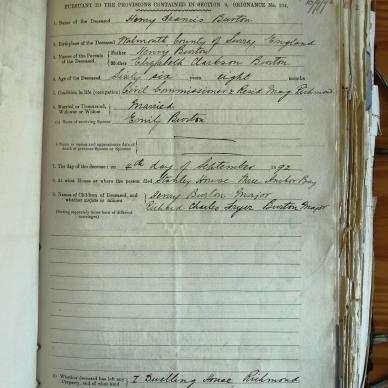 PURSUANT TO THE PROVISIONS CONTAINED IN SECTION 9, ORDINANCE No. 104,
1. Name of the Deceased Henry Francis Burton
2. Birthplace of the Deceased Walmouth County of Surrey England
3. Names of the Parents of the Deceased. Father Henry Burton
Mother Elizabeth Clarkson Burton
4. Age of the Deceased Sixty six years eight months
5. Condition in life (occupation) Civil Commissioner & Resid Mag Richmond
6. Married or Unmarried, Widower or Widow Married
(a) Name of surviving Spouse Emily Burton
7. The day of the decease: on 4th day of September 1892
8. At what House or where the person died Stanley House Three Anchor Bay
9. Names of Children of Deceased, and whether majors or minors Henry Burton Major
Richard Charles Fryer Burton Major
(Stating separately those born of different marriages)
10. Whether deceased has left any Property, and of what kind 1 Dwelling House Richmond